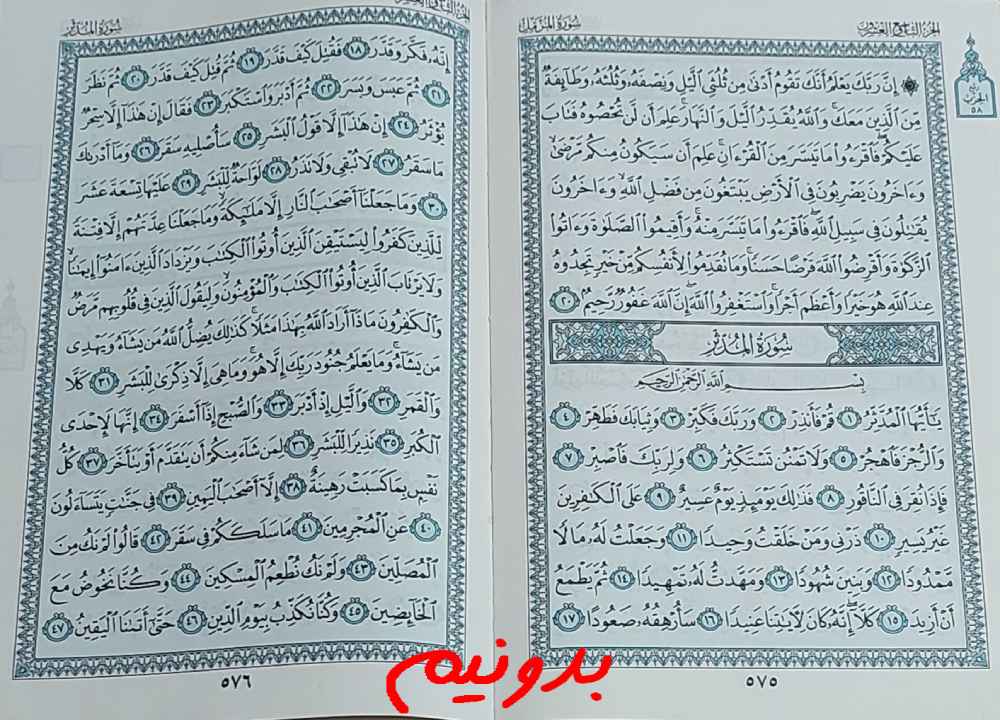 الجزء التاسع والعشرون
سورة المزمل
ربع
الحزب
٥٨
۞ إِنَّ رَبَّكَ يَعْلَمُ أَنَّكَ تَقُومُ أَدْنَىٰ مِن ثُلُثَيِ الَّيْلِ وَنِصْفَهُۥ وَثُلُثَهُۥ وَطَآئِفَةٌ
مِّنَ الَّذِينَ مَعَكَ ۚ وَاللَّهُ يُقَدِّرُ الَّيْلَ وَالنَّهَارَ ۚ عَلِمَ أَن لَّن تُحْصُوهُ فَتَابَ
عَلَيْكُمْ ۖ فَاقْرَءُوا۟ مَا تَيَسَّرَ مِنَ الْقُرْءَانِ ۚ عَلِمَ أَن سَيَكُونُ مِنكُم مَّرْضَىٰ ۙ
وَءَاخَرُونَ يَضْرِبُونَ فِى الْأَرْضِ يَبْتَغُونَ مِن فَضْلِ اللَّهِ ۙ وَءَاخَرُونَ
يُقَٰتِلُونَ فِى سَبِيلِ اللَّهِ ۖ فَاقْرَءُوا۟ مَا تَيَسَّرَ مِنْهُ ۚ وَأَقِيمُوا۟ الصَّلَوٰةَ وَءَاتُوا۟
الزَّكَوٰةَ وَأَقْرِضُوا۟ اللَّهَ قَرْضًا حَسَنًا ۚ وَمَا تُقَدِّمُوا۟ لِأَنفُسِكُم مِّنْ خَيْرٍ تَجِدُوهُ
عِندَ اللَّهِ هُوَ خَيْرًا وَأَعْظَمَ أَجْرًا ۚ وَاسْتَغْفِرُوا۟ اللَّهَ ۖ إِنَّ اللَّهَ غَفُورٌ رَّحِيمٌۢ ٢٠
سورة المدثر
بِسْمِ اللَّهِ الرَّحْمَٰنِ الرَّحِيمِ
يَٰٓأَيُّهَا الْمُدَّثِّرُ ١ قُمْ فَأَنذِرْ ٢ وَرَبَّكَ فَكَبِّرْ ٣ وَثِيَابَكَ فَطَهِّرْ ٤
وَالرُّجْزَ فَاهْجُرْ ٥ وَلَا تَمْنُن تَسْتَكْثِرُ ٦ وَلِرَبِّكَ فَاصْبِرْ ٧
فَإِذَا نُقِرَ فِى النَّاقُورِ ٨ فَذَٰلِكَ يَوْمَئِذٍ يَوْمٌ عَسِيرٌ ٩ عَلَى الْكَٰفِرِينَ
غَيْرُ يَسِيرٍ ١٠ ذَرْنِى وَمَنْ خَلَقْتُ وَحِيدًا ١١ وَجَعَلْتُ لَهُۥ مَالًا
مَّمْدُودًا ١٢ وَبَنِينَ شُهُودًا ١٣ وَمَهَّدتُّ لَهُۥ تَمْهِيدًا ١٤ ثُمَّ يَطْمَعُ
أَنْ أَزِيدَ ١٥ كَلَّآ ۖ إِنَّهُۥ كَانَ لِءَايَٰتِنَا عَنِيدًا ١٦ سَأُرْهِقُهُۥ صَعُودًا ١٧
٥٧٥
الجزء التاسع والعشرون
سورة المدثر
إِنَّهُۥ فَكَّرَ وَقَدَّرَ ١٨ فَقُتِلَ كَيْفَ قَدَّرَ ١٩ ثُمَّ قُتِلَ كَيْفَ قَدَّرَ ٢٠ ثُمَّ نَظَرَ
٢١ ثُمَّ عَبَسَ وَبَسَرَ ٢٢ ثُمَّ أَدْبَرَ وَاسْتَكْبَرَ ٢٣ فَقَالَ إِنْ هَٰذَآ إِلَّا سِحْرٌ
يُؤْثَرُ ٢٤ إِنْ هَٰذَآ إِلَّا قَوْلُ الْبَشَرِ ٢٥ سَأُصْلِيهِ سَقَرَ ٢٦ وَمَآ أَدْرَىٰكَ
مَا سَقَرُ ٢٧ لَا تُبْقِى وَلَا تَذَرُ ٢٨ لَوَّاحَةٌ لِّلْبَشَرِ ٢٩ عَلَيْهَا تِسْعَةَ عَشَرَ
٣٠ وَمَا جَعَلْنَآ أَصْحَٰبَ النَّارِ إِلَّا مَلَٰٓئِكَةً ۙ وَمَا جَعَلْنَا عِدَّتَهُمْ إِلَّا فِتْنَةً
لِّلَّذِينَ كَفَرُوا۟ لِيَسْتَيْقِنَ الَّذِينَ أُوتُوا۟ الْكِتَٰبَ وَيَزْدَادَ الَّذِينَ ءَامَنُوٓا۟ إِيمَٰنًا ۙ
وَلَا يَرْتَابَ الَّذِينَ أُوتُوا۟ الْكِتَٰبَ وَالْمُؤْمِنُونَ ۙ وَلِيَقُولَ الَّذِينَ فِى قُلُوبِهِم مَّرَضٌ
وَالْكَٰفِرُونَ مَاذَآ أَرَادَ اللَّهُ بِهَٰذَا مَثَلًا ۚ كَذَٰلِكَ يُضِلُّ اللَّهُ مَن يَشَآءُ وَيَهْدِى
مَن يَشَآءُ ۚ وَمَا يَعْلَمُ جُنُودَ رَبِّكَ إِلَّا هُوَ ۚ وَمَا هِىَ إِلَّا ذِكْرَىٰ لِلْبَشَرِ ٣١ كَلَّا
وَالْقَمَرِ ٣٢ وَالَّيْلِ إِذْ أَدْبَرَ ٣٣ وَالصُّبْحِ إِذَآ أَسْفَرَ ٣٤ إِنَّهَا لَإِحْدَى
الْكُبَرِ ٣٥ نَذِيرًا لِّلْبَشَرِ ٣٦ لِمَن شَآءَ مِنكُمْ أَن يَتَقَدَّمَ أَوْ يَتَأَخَّرَ ٣٧ كُلُّ
نَفْسٍۭ بِمَا كَسَبَتْ رَهِينَةٌ ٣٨ إِلَّآ أَصْحَٰبَ الْيَمِينِ ٣٩ فِى جَنَّٰتٍ يَتَسَآءَلُونَ
٤٠ عَنِ الْمُجْرِمِينَ ٤١ مَا سَلَكَكُمْ فِى سَقَرَ ٤٢ قَالُوا۟ لَمْ نَكُ مِنَ
الْمُصَلِّينَ ٤٣ وَلَمْ نَكُ نُطْعِمُ الْمِسْكِينَ ٤٤ وَكُنَّا نَخُوضُ مَعَ
الْخَآئِضِينَ ٤٥ وَكُنَّا نُكَذِّبُ بِيَوْمِ الدِّينِ ٤٦ حَتَّىٰٓ أَتَىٰنَا الْيَقِينُ ٤٧
٥٧٦
بدونیم